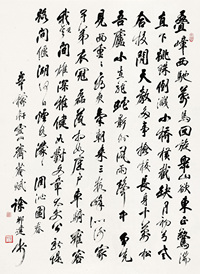 疊嶂西馳萬馬回旋衆山欲東正驚湍
直下跳珠倒濺小橋橫截缺月初弓老
合投閒天教多事檢校長身十萬松
吾廬小在龍蛇影外風雨聲中爭先
見面重重看爽氣朝來三數峰似謝家
子弟衣冠磊落相如庭户車騎雍容
我覺其間雄深雅健如對文章太史公新堤
路問偃湖何日煙水濛濛 調沁園春
辛稼軒靈山齊庵賦 徐邦達書